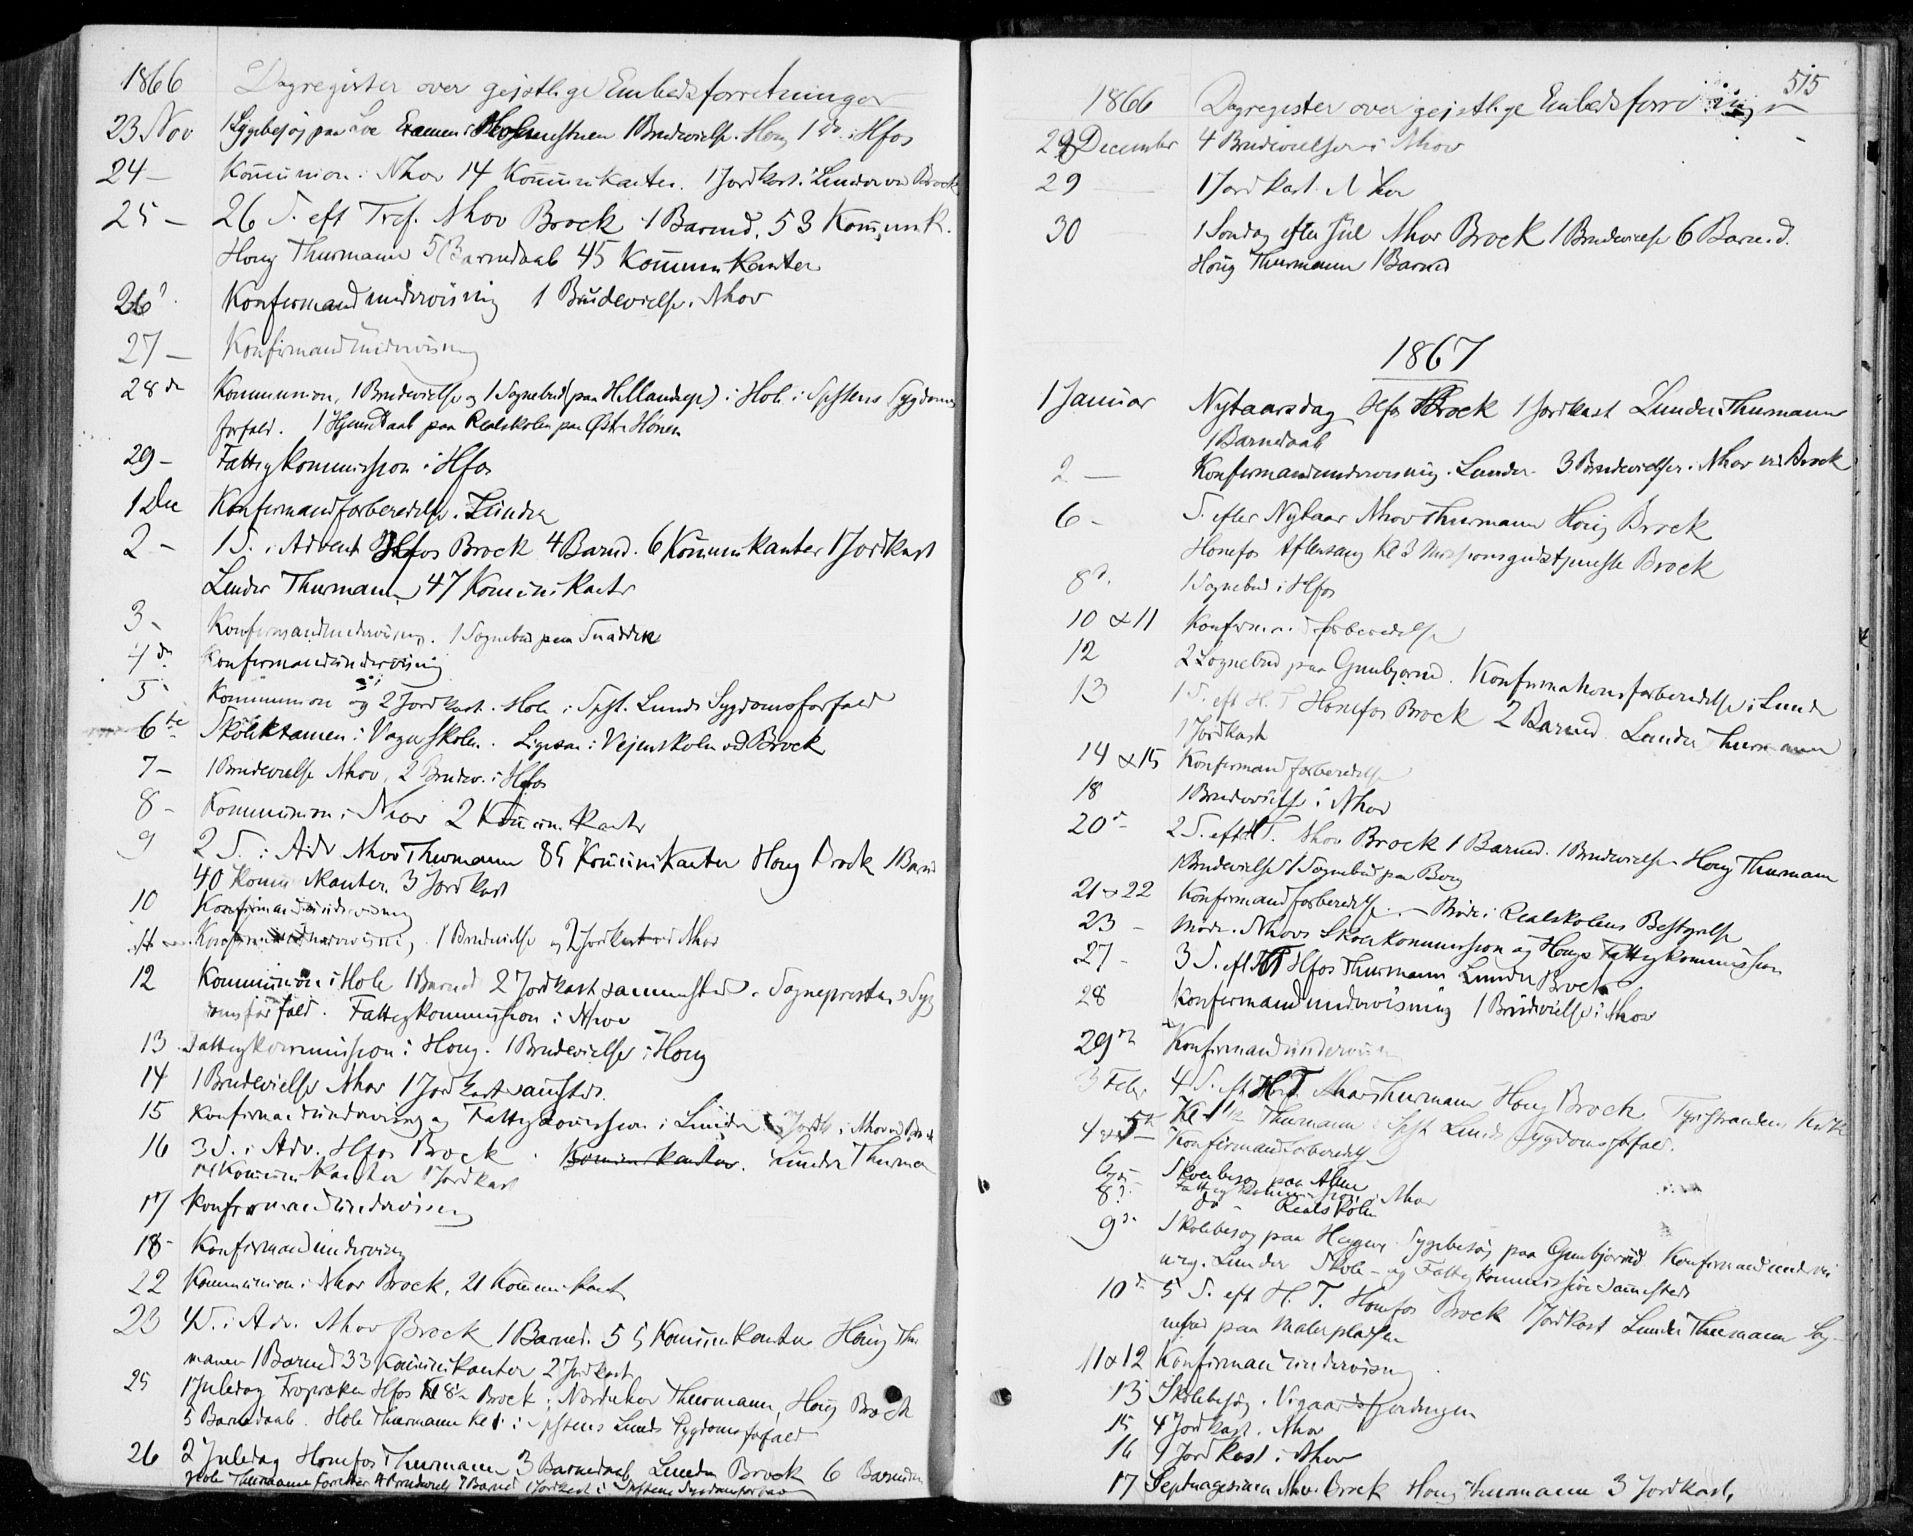 1866 Dagregister over gejstlige Embedsforretninger
23 Nov 1 Sygebesøg paa Examen i 1 Brudevielse i Houg 1 do. i Hfos
24 – Kommunion i Nhov 14 Kommunikanter. 1 Jordkast. i Lunder ved Brock
25 – 26 S. eft Tref. Nhov Brock 1 Barnd. 53 Kommunik.
Houg Thurmann 5 Barnedaab 45 Kommunikanter
26 Konfirmandundervisning 1 Brudevielse i Nhov
27 – Konfirmandundervisning
28 de Kommunion, 1 Brudevielse og 1 Sognebud (paa ) i Hole i Spstens Sygdoms
forfald. 1 Hjemdaab paa Realskolen paa Østr Hønen
29 – Fattigkommission i Hfos
1 Dec Konfirmandforberedelse i Lunder
2 – 1 S. i Advent Hfos Brock 4 Barnd. 6 Kommunikanter 1 Jordkast
Lunder Thurmann 47 Kommunikanter
3 – Konfirmandundervisning. 1 Sognebud paa
4 de Konfirmandundervisning
5 – Kommunion og 2 Jordkast. i Hole i Spst. Lunds Sygdomsforfald
6 te Skoleexamen i Vagerskolen. Ligesaa i Vejenskolen ved Brock
7 – 1 Brudevielse Nhov, 2 Brudev. i Hfos
8 – Kommunion i Nhov 2 Kommunikanter
9 2 S. i Adv Nhov Thurmann 85 Kommunikanter Houg Brock 1 Barnd
40 Kommunikanter. 3 Jordkast
10 Konfirmandundervisning
11 Konfirmandundervisning. 1 Brudevielse og 2 Jordkast ved Nhov
12 Kommunion i Hole 1 Barnd 2 Jordkast sammesteds i Sogneprestens Syg
domsforfald. Fattigkommission i Nhov
13 Fattigkommission i Houg. 1 Brudevielse i Houg
14 1 Brudevielse Nhov 1 Jordkast samsteds
15 Konfirmandundervisning og Fattigkommission i Lunder i Nhov ved Brock
16 3 S. i Adv. Hfos Brock Kommunikanter. Lunder Thurman
Kommunikanter 1 Jordkast
17 Konfirmandundervisning
18 – Konfirmandunderving
22 Kommunion i Nhov Brock, 21 Kommunikant
23 4 S. i Adv. Nhov Brock 1 Barned. 55 Kommunikanter Houg Thur
mann 1 Barned 33 Kommunikanter 2 Jordkast
25 1 Juledag Fropræken Hfos Kl 8 Brock i Norderhov Thurmann, Houg Brock
5 Barnedaab. Hole Thurmann Kl 1 i Spstens Lunds Sygdomsforfald
26 2 Juledag Honefos Thurmann 3 Barnedaab Lunder Brock 6 Barnedaab
Hole Thurmann 7 Barned 1 Jordkast i Spstens Sygdomsforfald
515
1866 Dagregister over gejstlige Embedsforretninger
28 December 4 Brudevielser i Nhov
29 – 1 Jordkast. Nhov
30 – 1 Sondag efter Jul Nhov Brock 1 Brudevielse 6 Barned.
Houg Thurmann 1 Barned
1867
1 Januar Nytaarsdag Hfos Brock 1 Jordkast Lunder Thurmann
1 Barnedaab
2 – Konfirmandundervisning i Lunder. 3 Brudevielser i Nhov ved Brock
6 – S. efter Nytaar Nhov Thurmann Houg Brock
Honefos Aftensang Kl 3 Missionsgudstjeneste Brock
8 d. 1 Sognebud i Hfos
10 & 11 Konfirmandforberedelse
12 2 Sognebud paa Gunbjorrud. Konfirmationsforberedelse i Lunder
13 1 S. eft H. T Honefos Brock 2 Barned. Lunder Thurmann
1 Jordkast
14 & 15 Konfirmandforberedelse
18 1 Brudevielse i Nhov
20 d – 2 S. eft H T. Nhov Brock 1 Barned. 1 Brudevielse Houg Thurmann
1 Brudevielse 1 Sognebud paa Berg
21 & 22 Konfirmandforberedelse. – Møde i Realskolens Bestyrelse
23 – Møde i Nhovs Skolekommission og Hougs Fattigkommission
27 – 3 S. eft H T Hfos Thurmann Lunder Brock
28 Konfirmandundervisning 1 Brudevielse i Nhov
29 de Konfirmandundervisning
3 Febr. 4 S. eft H. T. Nhov Thurmann Houg Brock Tyristrandens Kirke
Kl 1 1/2 Thurmann i Spst Lunds Sygdomsforfald.
4 & 5 te – Konfirmandforberedelse
6 Skolebesøg paa
8 d. Fattigkommission i Nhov
do Realskolen
9 d. Skolebesøg paa Sygebesøg paa Gunbjorrud Konfirmandundervis
ning i Lunder Skole- og Fattigkommission samsteds
10 d 5 S. eft H. T. Honefos Brock 1 Jordkast Lunder Thurmann Sog-
nebud paa Malerpladsen
11 & 12 Konfirmandundervisning
13 Skolebesøg i Vegaardsfjerdingen
15 4 Jordkast. Nhov
16 1 Jordkast i Nhov
17 Septuagesima Nhov Brock Houg Thurmann 3 Jordkast.